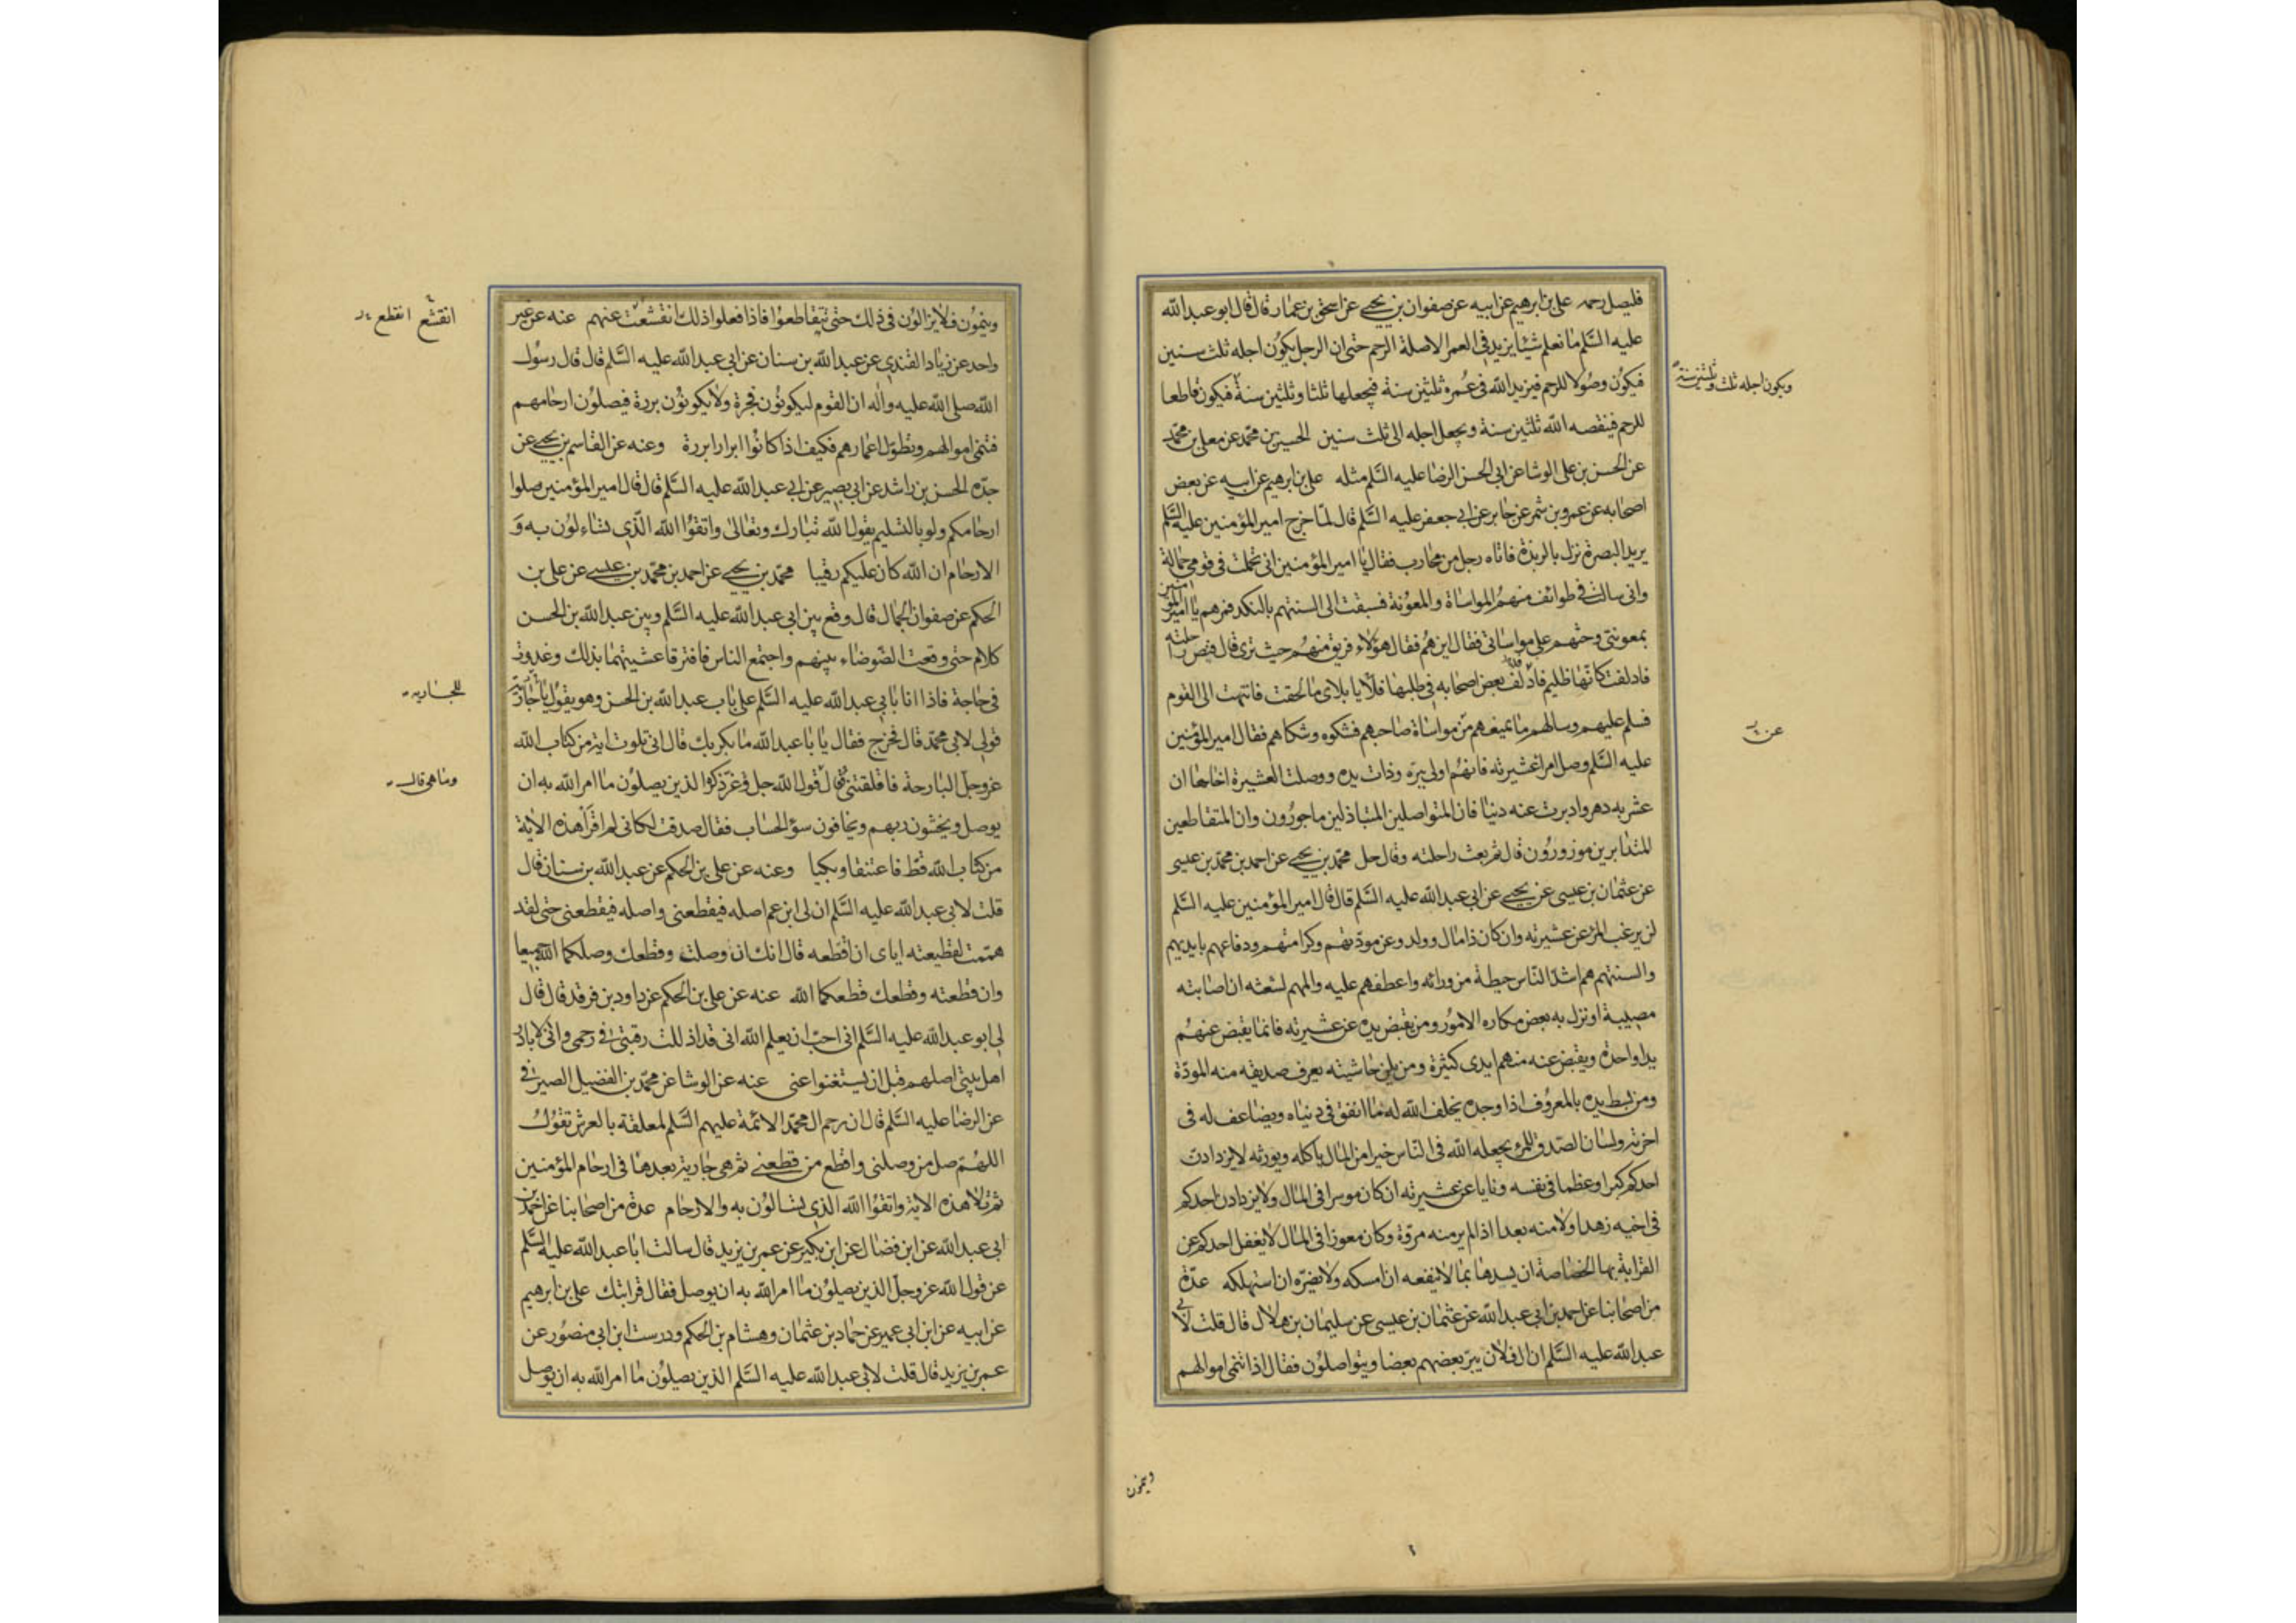 فليصل رحمه علي بن ابرهيم عن ابيه عن صفوان بن يحيى عن اسحق بن عمار قال قال ابو عبد الله
عليه السلم ما نعلم شيئا يزيد في العمر الا صلة الرحم حتى ان الرجل يكون اجله ثلث سنين
فيكون وصولا للرحم فيزيد الله في عمره ثلثين سنة فيجعلها ثلثا وثلثين سنة فيكون قاطعا
ويكون اجله ثلث وثلثين سنة
للرحم فينقصه الله ثلثين سنة ويجعل اجله الى ثلث سنين الحسين بن محمد عن معلى بن محمد
عن الحسن بن علي الوشا عن ابي الحسن الرضا عليه السلم مثله علي بن ابرهيم عن ابيه عن بعض
اصحابه عن عمرو بن شمر عن جابر عن ابي جعفر عليه السلم قال لما خرج امير المؤمنين عليه السلم
يريد البصرة نزل بالربذة فاتاه رجل من محارب فقال يا امير المؤمنين انى تحملت فى قومى حمالة
وانى سالت فى طوائف منهم المواساة والمعونة فسبقت الى السنتهم بالنكد فمرهم يا امير المؤمنين
بمعونتى وحثهم على مواساتى فقال اين هم فقال هؤلاء فريق منهم حيث ترى قال فنص راحلته
فادلفت كانها ظليم فادلف بعض اصحابه فى طلبها فلأيا بلاى ما لحقت فانتهت الى القوم
فسلم عليهم وسالهم ما يمنعهم من مواساة صاحبهم فشكوه وشكاهم فقال امير المؤمنين
عن
عليه السلم وصل امرا عشيرته فانهم اولى ببره وذات يده ووصلت العشيرة اخاها ان
عثر به دهر وادبرت عنه دنيا فان المتواصلين المتباذلين ماجورون وان المتقاطعين
المتدابرين موزورون قال ثم بعث راحلته وقال حل محمد بن يحيى عن احمد بن محمد بن عيسى
عن عثمان بن عيسى عن يحيى عن ابى عبد الله عليه السلم قال قال امير المؤمنين عليه السلم
لن يرغب المرء عن عشيرته وان كان ذا مال وولد وعن مودتهم وكرامتهم ودفاعهم بايديهم
والسنتهم هم اشد الناس حيطة من ورائه واعطفهم عليه والمهم لشعثه ان اصابته
مصيبة او نزل به بعض مكاره الامور ومن يقبض يده عن عشيرته فانما يقبض عنهم
يدا واحدة ويقبض عنه منهم ايدى كثيرة ومن يلن حاشيته يعرف صديقه منه المودة
ومن بسط يده بالمعروف اذا وجده يخلف الله له ما انفق فى دنياه ويضاعف له فى
اخرته ولسان الصدق للمرء يجعله الله فى الناس خيرا من المال ياكله ويورثه لا يزدادن
احدكم كبرا وعظما فى نفسه ونايا عن عشيرته ان كان موسرا فى المال ولا يزدادن احدكم
فى اخيه زهدا ولا منه بعدا اذا لم ير منه مروة وكان معوزا فى المال لا يغفل احدكم عن
القرابة بها الخصاصة ان يسدها بما لا ينفعه ان امسكه ولا يضره ان استهلكه عدة
من اصحابنا عن احمد بن ابى عبد الله عن عثمان بن عيسى عن سليمان بن هلال قال قلت لابى
عبد الله عليه السلم ان ال فلان يبر بعضهم بعضا ويتواصلون فقال اذا تنمى اموالهم
وينمون
وينمون فلا يزالون فى ذلك حتى يتقاطعوا فاذا فعلوا ذلك انقشعت عنهم عنه عن غير
انقشع انقطع
واحد عن زياد القندى عن عبد الله بن سنان عن ابى عبد الله عليه السلم قال قال رسول
الله صلى الله عليه واله ان القوم ليكونون فجرة ولا يكونون بررة فيصلون ارحامهم
فتنمى اموالهم وتطول اعمارهم فكيف اذا كانوا ابرارا بررة وعنه عن القاسم بن يحيى عن
جده الحسن بن راشد عن ابى بصير عن ابى عبد الله عليه السلم قال قال امير المؤمنين صلوا
ارحامكم ولو بالتسليم يقول الله تبارك وتعالى واتقوا الله الذى تساءلون به و
الارحام ان الله كان عليكم رقيبا محمد بن يحيى عن احمد بن محمد بن عيسى عن على بن
الحكم عن صفوان الجمال قال وقع بين ابى عبد الله عليه السلم وبين عبد الله بن الحسن
كلام حتى وقعت الضوضاء بينهم واجتمع الناس فافترقا عشيتهما بذلك وغدوت
فى حاجة فاذا انا بابى عبد الله عليه السلم على باب عبد الله بن الحسن وهو يقول يا جارية
للجارية
قولى لابى محمد قال فخرج فقال يا با عبد الله ما بكر بك قال انى تلوت اية من كتاب الله
عز وجل البارحة فاقلقتنى قال قول الله جل وعز ذكره الذين يصلون ما امر الله به ان
وما هى قال
يوصل ويخشون ربهم ويخافون سوء الحساب فقال صدقت لكانى لم اقرا هذه الاية
من كتاب الله قط فاعتنقا وبكيا وعنه عن على بن الحكم عن عبد الله بن سنان قال
قلت لابى عبد الله عليه السلم ان لى ابن عم اصله فيقطعنى واصله فيقطعنى حتى لقد
هممت لقطيعته اياى ان اقطعه قال انك ان وصلت وقطعك وصلكما الله جميعا
وان قطعته وقطعك قطعكما الله عنه عن على بن الحكم عن داود بن فرقد قال قال
لى ابو عبد الله عليه السلم انى احب ان يعلم الله انى قد اذللت رقبتى فى رحمى وانى لابادر
اهل بيتى اصلهم قبل ان يستغنوا عنى عنه عن الوشا عن محمد بن الفضيل الصيرفى
عن الرضا عليه السلم قال ان رحم ال محمد الائمة عليهم السلم لمعلقة بالعرش تقول
اللهم صل من وصلنى واقطع من قطعنى ثم هى جارية بعدها فى ارحام المؤمنين
ثم تلا هذه الاية واتقوا الله الذى تسالون به والارحام عدة من اصحابنا عن احمد بن
ابى عبد الله عن ابن فضال عن ابن بكير عن عمر بن يزيد قال سالت ابا عبد الله عليه السلم
عن قول الله عز وجل الذين يصلون ما امر الله به ان يوصل فقال قرابتك على بن ابرهيم
عن ابيه عن ابن ابى عمير عن حماد بن عثمان وهشام بن الحكم ودرست ابن ابى منصور عن
عمر بن يزيد قال قلت لابى عبد الله عليه السلم الذين يصلون ما امر الله به ان يوصل